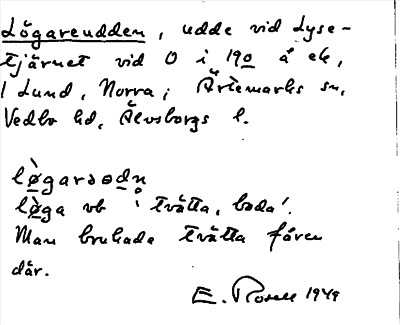 Lögareudden, udde vid Lyse-
tjärnet vid O i 190 å ek,
1 Lund, Norra, i Ärtemarks sn,
Vedbo hd, Älvsborgs l.
lø̀garəɷdn̥
lø̀ga vb 'tvätta, bada'.
Man brukade tvätta fåren
där.
E. Rosell 1949